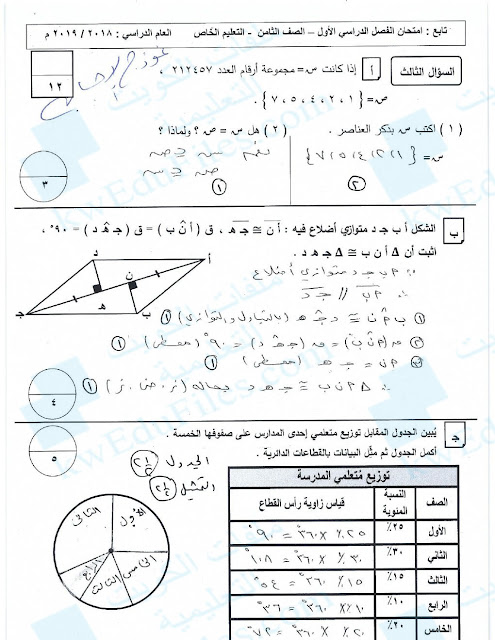 تابع : امتحان الفصل الدراسي الأول – الصف الثامن - التعليم الخاص العام الدراسي : ٢٠١٨ / ٢٠١٩ م
نموذج الإجابة
١٢
السؤال الثالث
أ
إذا كانت س = مجموعة أرقام العدد ٢١٢٤٥٧ ،
ص = { ١ ، ٢ ، ٤ ، ٥ ، ٧ } .
( ١ ) اكتب س بذكر العناصر . ( ٢ ) هل س = ص ؟ ولماذا ؟
س = { ١ ، ٢ ، ٤ ، ٥ ، ٧ }
نعم س ⊆ ص
ص ⊆ س
٢
١
٣
ب
الشكل أ ب ج د متوازي أضلاع فيه : أن ≅ جـ هـ ، ق ( أ ن̂ ب ) = ق ( جـ هـ̂ د ) = ٩٠° ،
اثبت أن Δ أ ن ب ≅ Δ جـ هـ د .
∵ ٢ ب جـ د متوازي أضلاع
∴ ٢ب // جـ د
أ
د
ن
هـ
ب
جـ
① ب ٢̂ ن ≅ د جـ̂ هـ ( بالتبادل والتوازي ) ①
② ق ( ٢ ن̂ ب ) = ق ( جـ هـ̂ د ) = ٩٠° ( معطى ) ①
③ ٢ن = جـ هـ ( معطى ) ①
∴ Δ ٢ ن ب ≅ جـ هـ د بحالة ( ز . ض . ز ) ①
٤
ج
يُبين الجدول المقابل توزيع متعلمي إحدى المدارس على صفوفها الخمسة .
أكمل الجدول ثم مثّل البيانات بالقطاعات الدائرية .
٥
الجدول ٢ ١/٢
التمثيل ٢ ١/٢
توزيع مُتعلمي المدرسة
الصف النسبة المئوية قياس زاوية رأس القطاع
الأول ٢٥٪ ٢٥٪ × ٣٦٠° = ٩٠°
الثاني ٣٠٪ ٣٠٪ × ٣٦٠° = ١٠٨°
الثالث ١٥٪ ١٥٪ × ٣٦٠° = ٥٤°
الرابع ١٠٪ ١٠٪ × ٣٦٠° = ٣٦°
الخامس ٢٠٪ ٢٠٪ × ٣٦٠° = ٧٢°
الأول
الثاني
الخامس
الرابع
الثالث
kwEduFiles.com